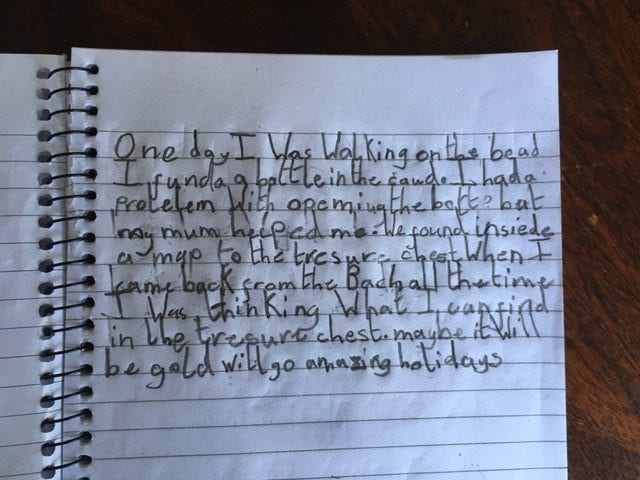 One day I Was Walking on the bead
I funda a bottle in the sande. I had a
protelem with opening the bott but
my mum helped me. We found insiede
a map to the tresure chest. When I
came back from the Bach all the time
I Was thinking What I can find
in the tresure chest. maybe it will
be gold will go amazing holidays